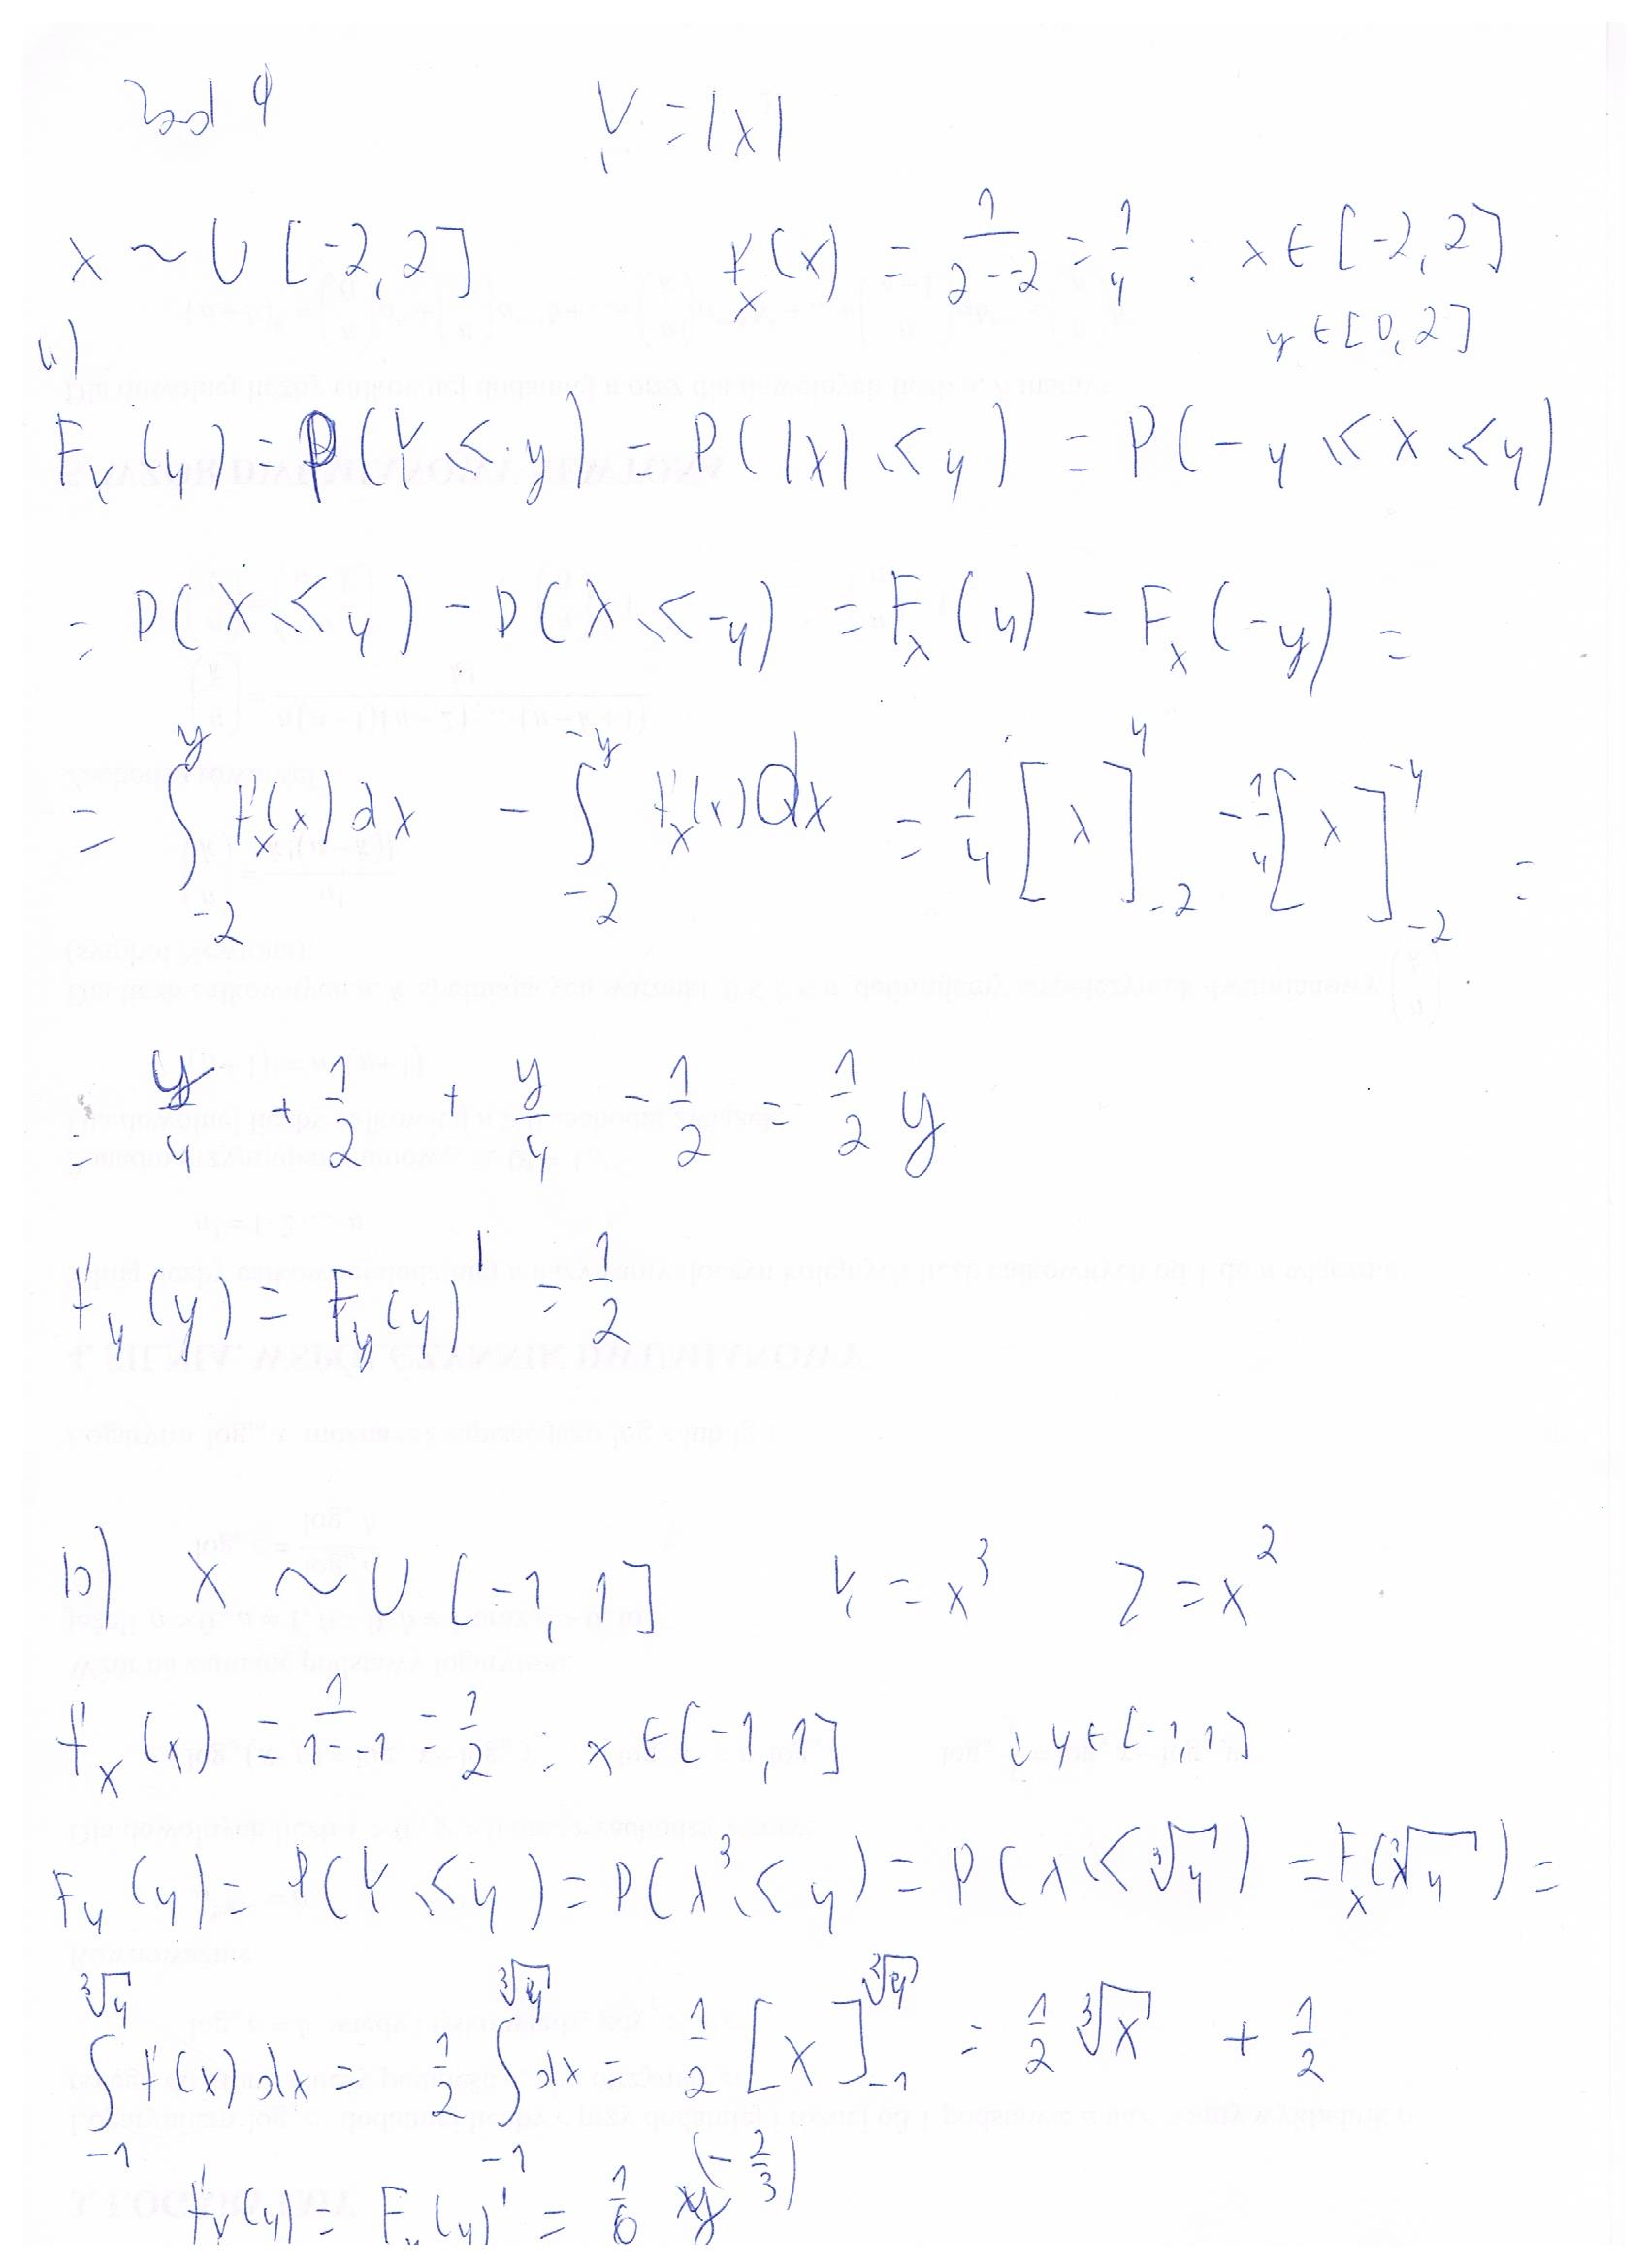 Zad 4 Y = |x|
X ~ U [-2, 2] f_X(x) = 1/(2--2) = 1/4 : x ∈ [-2, 2]
y ∈ [0, 2]
a)
F_Y(y) = P(Y ≤ y) = P(|X| ≤ y) = P(-y ≤ X ≤ y)
= P(X ≤ y) - P(X ≤ -y) = F_X(y) - F_X(-y) =
= ∫_{-2}^{y} f_X(x) dx - ∫_{-2}^{-y} f_X(x) dx = 1/4 [x]_{-2}^{y} - 1/4 [x]_{-2}^{-y} =
= y/4 + 1/2 + y/4 - 1/2 = 1/2 y
f_y(y) = F_y(y)' = 1/2
b) X ~ U [-1, 1] Y = x^3 Z = x^2
f_X(x) = 1/(1--1) = 1/2 : x ∈ [-1, 1] i y ∈ [-1, 1]
F_y(y) = P(Y ≤ y) = P(X^3 ≤ y) = P(X ≤ ∛y) = F_X(∛y) =
∫_{-1}^{∛y} f(x) dx = 1/2 ∫_{-1}^{∛y} dx = 1/2 [x]_{-1}^{∛y} = 1/2 ∛x + 1/2
f_Y(y) = F_Y(y)' = 1/6 y^(-2/3)